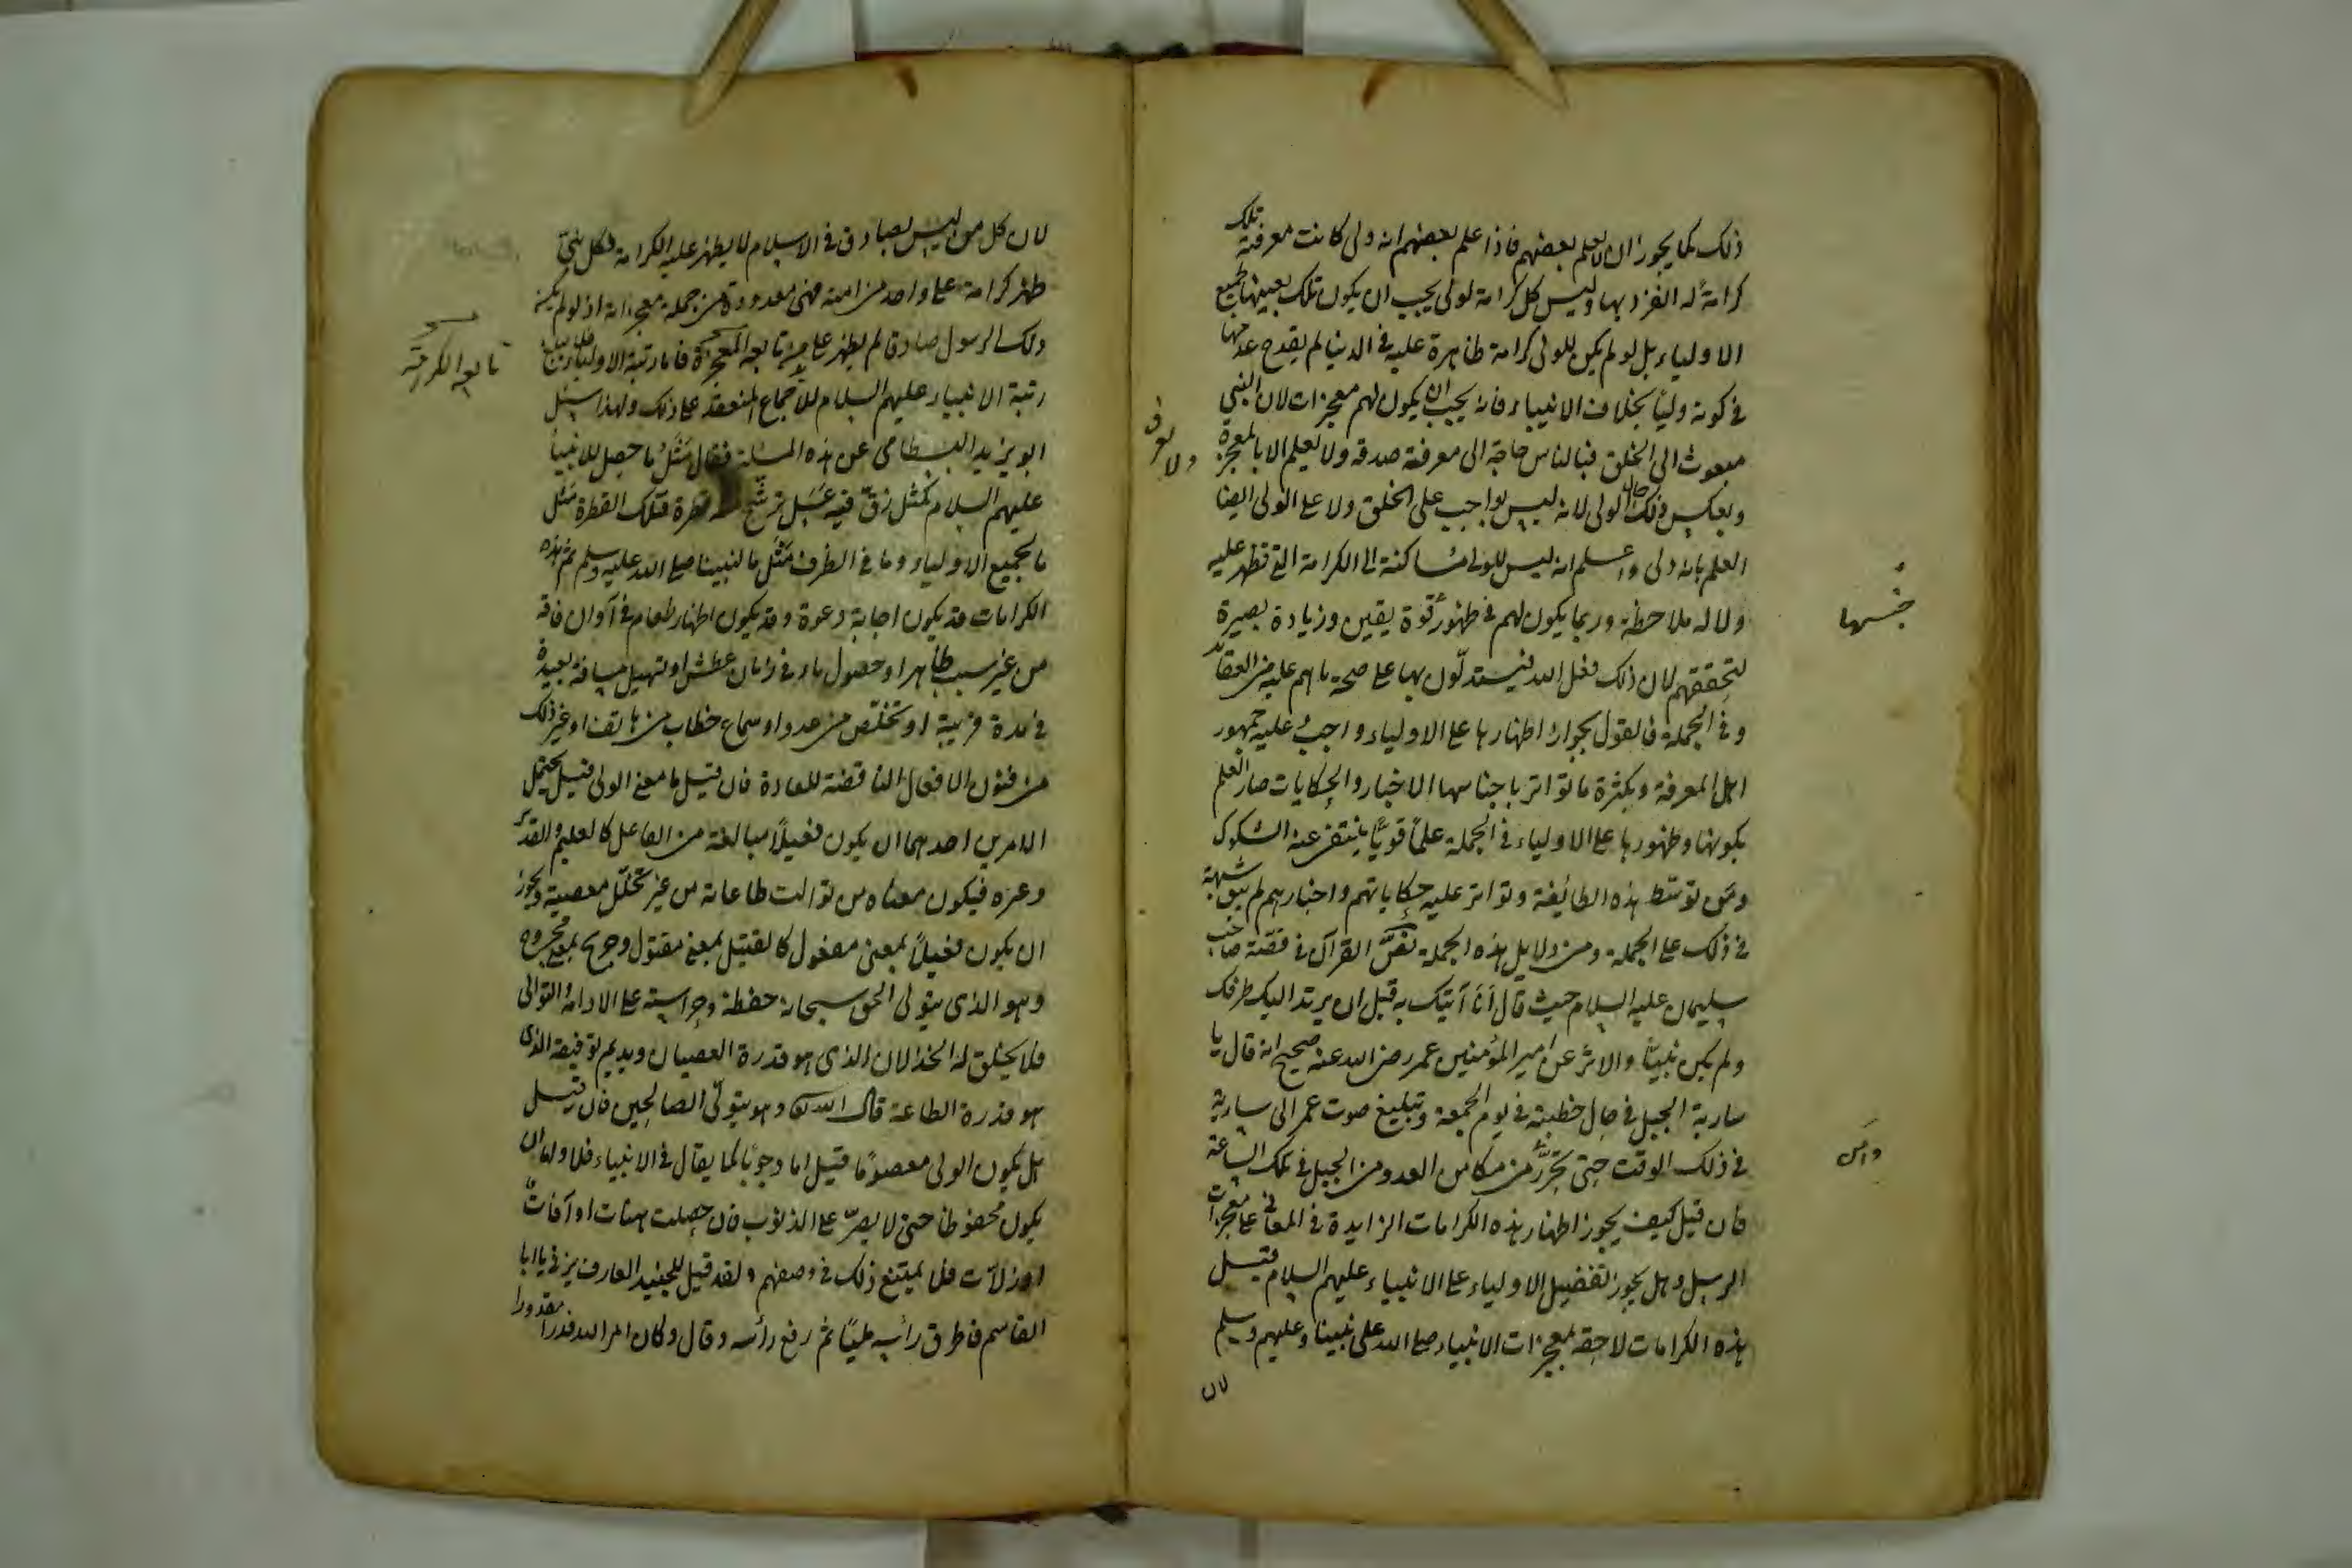 ذلك كما يجوز ان لا يعلم بعضهم فاذا علم بعضهم انه ولى كانت معرفته تلك
كرامة له انفرد بها وليس كل كرامة لولى يجب ان يكون تلك بعينها لجميع
الاولياء بل لو لم يكن للولى كرامة ظاهرة عليه فى الدنيا لم يقدح عدمها
فى كونه وليا بخلاف الانبياء فانه يجب ان يكون لهم معجزات لان النبي
مبعوث الى الخلق فبالناس حاجة الى معرفة صدقه ولا يعلم الا بالمعجزة
ولا يعرف
وبعكس ذلك حال الولى لانه ليس بواجب على الخلق ولا على الولى ايضا
العلم بانه ولى واعلم انه ليس للولى مساكنة الى الكرامة التى تظهر عليه
ولا له ملاحظة وربما يكون لهم فى ظهور قوة يقين وزيادة بصيرة
جنسها
لتحققهم لان ذلك فعل الله فيستدلون بها على صحة ما هم عليه من العقائد
وفى الجملة فالقول بجواز اظهارها على الاولياء واجب عليه جمهور
اهل المعرفة وبكثرة ما تواتر باجناسها الاخبار والحكايات صار العلم
بكونها وظهورها على الاولياء فى الجملة علما قويا ينتفى عنه الشكوك
ومن توسط هذه الطائفة وتواتر عليه حكاياتهم واخبارهم لم يبق شبهة
فى ذلك على الجملة ومن دلايل هذه الجملة نص القرآن فى قصة صاحب
سليمان عليه السلام حيث قال أنا آتيك به قبل ان يرتد اليك طرفك
ولم يكن نبيا والاثر عن امير المؤمنين عمر رضى الله عنه صحيح انه قال يا
سارية الجبل فى حال خطبته فى يوم الجمعة وتبليغ صوت عمر الى سارية
فى ذلك الوقت حتى تحرز من مكامن العدو من الجبل فى تلك الساعة
فان قيل كيف يجوز اظهار هذه الكرامات الزايدة فى المعانى على معجزات
الرسل وهل يجوز تفضيل الاولياء على الانبياء عليهم السلام قيل
هذه الكرامات لاحقة بمعجزات الانبياء صلى الله على نبينا وعليهم وسلم
لان
لان كل من ليس بصادق فى الاسلام لا يظهر عليه الكرامة فكل نبى
ظهر كرامة على واحد من امته فهى معدودة من جملة معجزاته اذ لو لم يكن
ذلك الرسول صادقا لم يظهر على من تابعه المعجزة فاما رتبة الاولياء فلا يبلغ
تابعه الكرامة
رتبة الانبياء عليهم السلام للاجماع المنعقد على ذلك ولهذا سئل
ابو يزيد البسطامى عن هذه المسئلة فقال مثل ما حصل للانبياء
عليهم السلام كمثل زق فيه عسل ترشح منه قطرة فتلك القطرة مثل
ما لجميع الاولياء وما فى الظرف مثل ما لنبينا صلى الله عليه وسلم ثم هذه
الكرامات قد يكون اجابة دعوة وقد يكون اظهار طعام فى آوان فاقة
من غير سبب ظاهر او حصول ماء فى زمان عطش او تسهيل مسافة بعيدة
فى مدة قريبة او تخلص من عدو او سماع خطاب من هاتف او غير ذلك
من فنون الافعال الناقضة للعادة فان قيل ما معنى الولى قيل يحتمل
الامرين احدهما ان يكون فعيلا مبالغة من الفاعل كالعليم والقدير
وغيره فيكون معناه من توالت طاعاته من غير تخلل معصية ويجوز
ان يكون فعيلا بمعنى مفعول كالقتيل بمعنى مقتول وجريح بمعنى مجروح
وهو الذى يتولى الحق سبحانه حفظه وحراسته على الادامة والتوالى
فلا يخلق له الخذلان الذى هو قدرة العصيان ويديم توفيقه الذى
هو قدرة الطاعة قال الله تعالى وهو يتولى الصالحين فان قيل
هل يكون الولى معصوما قيل اما وجوبا كما يقال فى الانبياء فلا واما ان
يكون محفوظا حتى لا يصر على الذنوب فان حصلت هنات او آفات
او زلات فلا يمتنع ذلك فى وصفهم ولقد قيل للجنيد العارف يزنى يا ابا
القاسم فاطرق رأسه مليا ثم رفع رأسه وقال وكان امر الله قدرا مقدورا